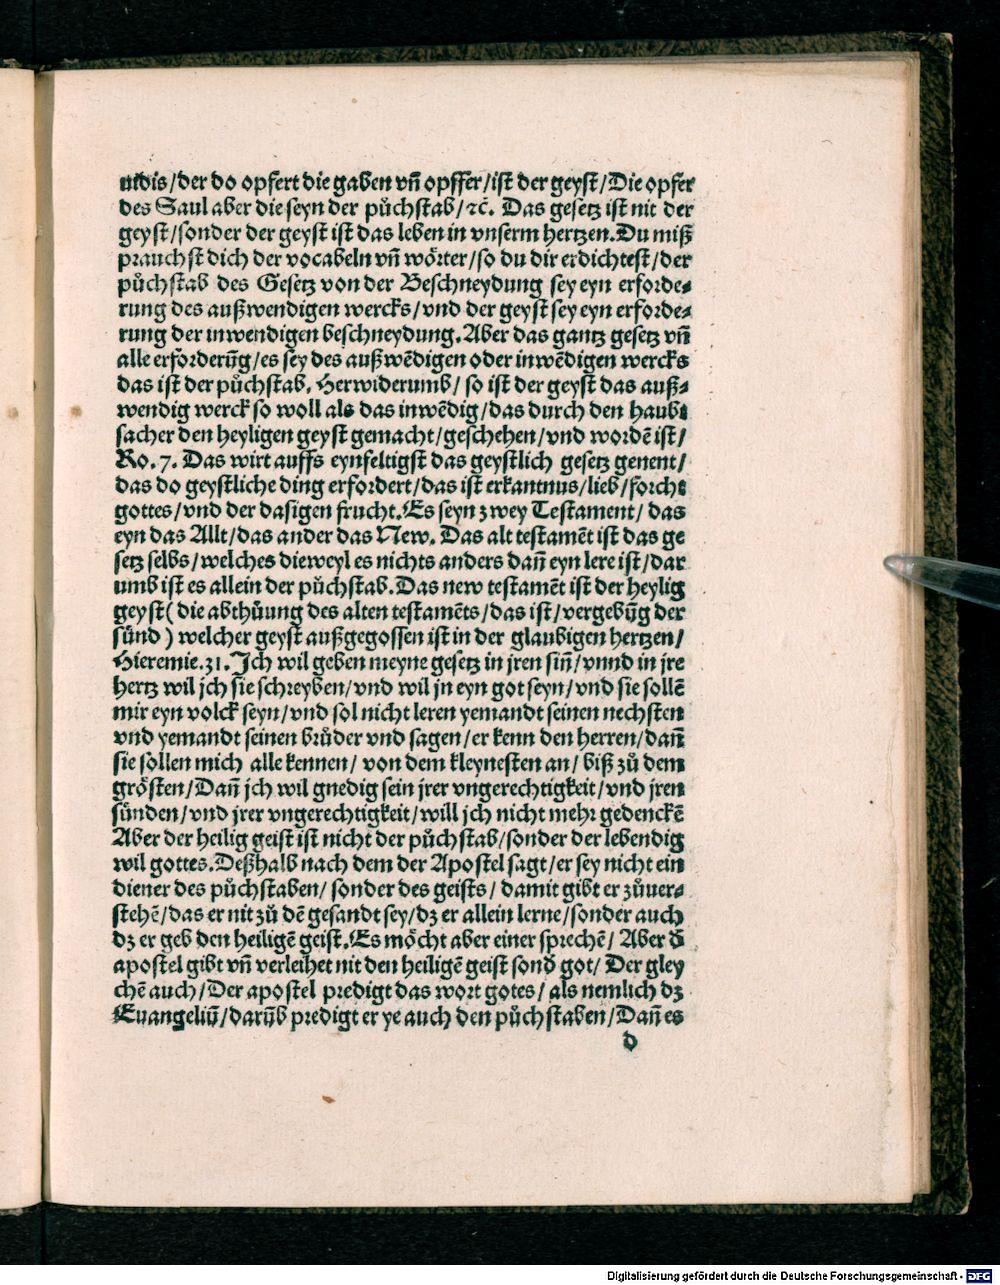 uidis/der do opfert die gaben vñ opffer/ist der geyst/Die opfer
des Saul aber die seyn der pů̈chstab/⁊c̃. Das gesetz ist nit der
geyst/sonder der geyst ist das leben in vnserm hertzen.Du miß
prauchst dich der vocabeln vñ wörter/so du dir erdichtest/der
půchstab des Gesetz von der Beschneydung sey eyn erforde⸗
rung des außwendigen wercks/vnd der geyst sey eyn erforde⸗
rung der inwendigen beschneydung.Aber das gantz gesetz vñ
alle erforderūg/es sey des außwēdigen oder inwēdigen wercks
das ist der půchstab. Herwiderumb/ so ist der geyst das auß⸗
wendig werck so woll als das inwēdig/das durch den haubt
sacher den heyligen geyst gemacht/geschehen/vnd wordē ist/
Ro.7. Das wirt auffs eynfeltigst das geystlich gesetz genent/
das do geystliche ding erfordert/das ist erkantnus/lieb/forcht
gottes/vnd der dasigen frucht.Es seyn zwey Testament/ das
eyn das Allt/das ander das New. Das alt testamēt ist das ge
setz selbs/welches dieweyl es nichts anders dañ eyn lere ist/dar
umb ist es allein der půchstab.Das new testamēt ist der heylig
geyst( die abthůung des alten testamēts/das ist/vergebūg der
sünd ) welcher geyst außgegossen ist in der glaubigen hertzen/
Hieremie.31.Jch wil geben meyne gesetz in jren siñ/vnnd in jre
hertz wil jch sie schreyben/vnd wil jn eyn got seyn/vnd sie sollē
mir eyn volck seyn/vnd sol nicht leren yemandt seinen nechsten
vnd yemandt seinen brůder vnd sagen/er kenn den herren/dañ
sie sollen mich alle kennen/ von dem kleynesten an/ biß zů dem
grösten/Dañ jch wil gnedig sein jrer vngerechtigkeit/vnd jren
sünden/vnd jrer vngerechtigkeit/will jch nicht mehr gedenckē
Aber der heilig geist ist nicht der půchstab/sonder der lebendig
wil gottes.Deßhalb nach dem der Apostel sagt/er sey nicht ein
diener des půchstaben/ sonder des geists/ damit gibt er zůuer⸗
stehē/das er nit zů dē gesandt sey/dz er allein lerne/sonder auch
dz er geb den heiligē geist.Es möcht aber einer sprechē/ Aber d̄
apostel gibt vñ verleihet nit den heiligē geist sond̄ got/ Der gley
chē auch/Der apostel predigt das wort gotes/ als nemlich dz
Euangeliū/darūb predigt er ye auch den půchstaben/Dañ es
d
Digitalisierung gefördert durch die Deutsche Forschungsgemeinschaft - DFG